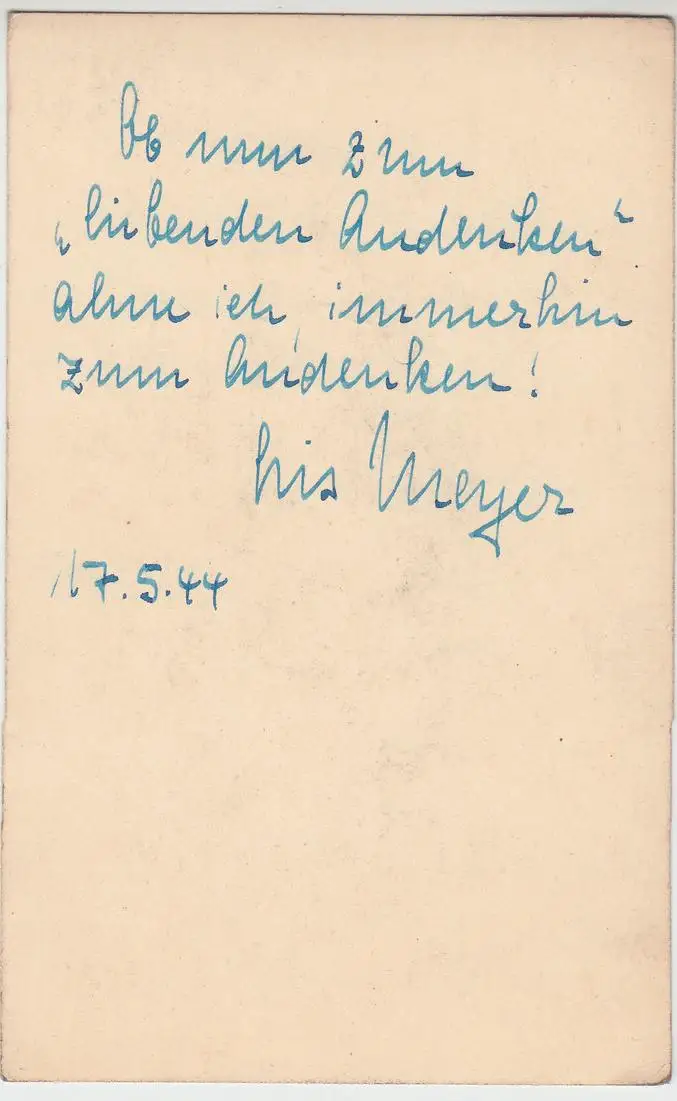 Ob nun zum
„liebenden Andenken“
ahne ich, immerhin
zum Andenken!
Lis Meyer
17.5.44